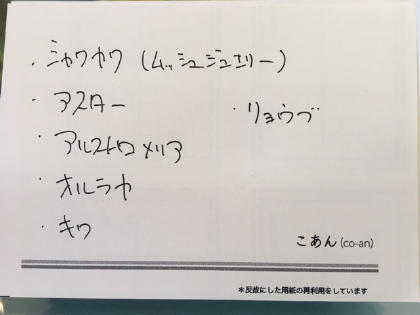 ・シャクヤク(ムッシュジュエリー)
・アスター
・アルストロメリア
・オルラヤ
・キク
・リョウブ
こあん(co-an)
*反故にした用紙の再利用をしています